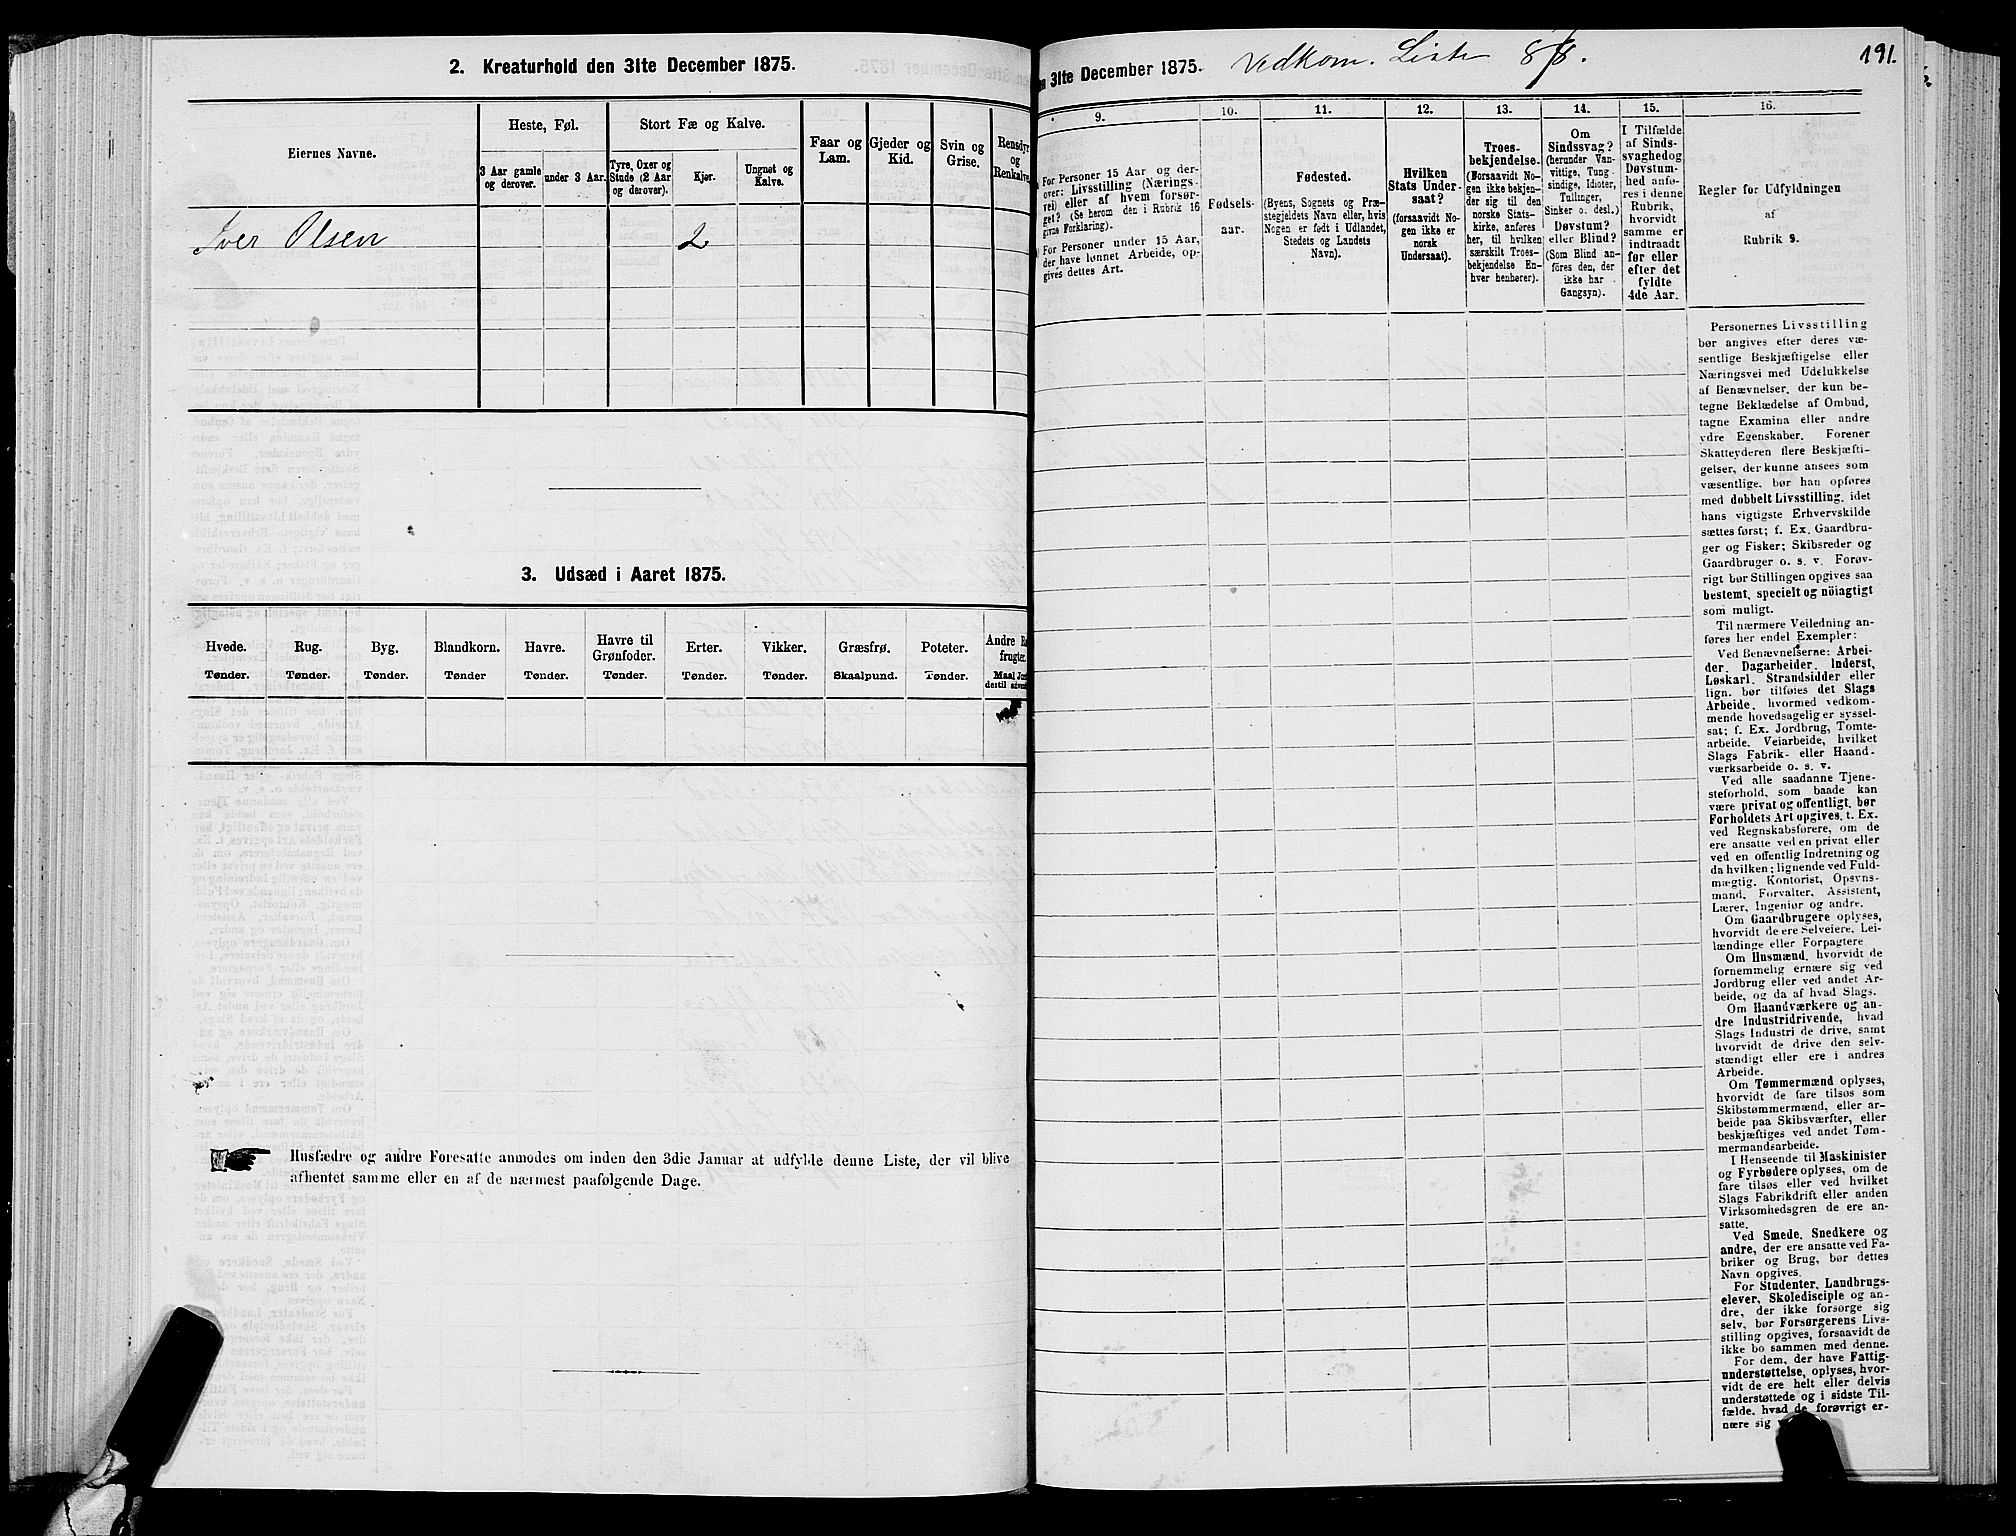 2. Kreaturhold den 31te December 1875.
Eiernes Navne.
Heste, Føl.
Stort Fæ og Kalve.
Faar og
Lam.
Gjeder og
Kid.
Svin og
Grise.
Rensdyr
og
Renkalve.
3 Aar gamle
og derover.
under 3 Aar.
Tyre, Oxer og
Stude (2 Aar
og derover).
Kjør.
Ungnøt og
Kalve.
Iver Olsen
2
3. Udsæd i Aaret 1875.
Hvede.
Rug.
Byg.
Blandkorn.
Havre.
Havre til
Grønfoder.
Erter.
Vikker.
Græsfrø.
Poteter.
Andre
frugter.
Tønder.
Tønder.
Tønder.
Tønder
Tønder.
Tønder.
Tønder.
Tønder.
Skaalpund.
Tønder.
Maal
Husfædre og andre Foresatte anmodes om inden den 3die Januar at udfylde denne Liste, der vil blive
afhentet samme eller en af de nærmest paafølgende Dage.
31te December 1875.
Vedkom. Liste
191.
9.
10.
11.
12.
13.
14.
15.
16.
For Personer 15 Aar og der-
over: Livsstilling (Nærings-
vei) eller af hvem forsør-
get? (Se herom den i Rubrik 16
givne Forklaring).
For Personer under 15 Aar,
der have lønnet Arbeide, op-
gives dettes Art.
Fødsels-
aar.
Fødested.
(Byens, Sognets og Præ-
stegjeldets Navn eller, hvis
Nogen er født i Udlandet,
Stedets og Landets
Navn).
Hvilken
Stats Under-
saat?
(forsaavidt No-
gen ikke er
norsk
Undersaat).
Troes-
bekjendelse.
(Forsaavidt No-
gen ikke bekjen-
der sig til den
norske Stats-
kirke, anføres
her, til hvilken
særskilt Troes-
bekjendelse En-
hver henhører).
Om
Sindssvag?
(herunder Van-
vittige, Tung-
sindige, Idioter,
Tullinger,
Sinker o. desl.)
Døvstum?
eller Blind?
(Som Blind an-
føres den, der
ikke har
Gangsyn).
I Tilfælde
af Sinds-
svaghed og
Døvstum-
hed anfø-
res i denne
Rubrik,
hvorvidt
samme er
indtraadt
før eller
efter det
fyldte
4de Aar.
Regler for Udfyldningen
af
Rubrik 9.
Personernes Livsstilling
bør angives efter deres væ-
sentlige Beskjæftigelse eller
Næringsvei med Udelukkelse
af Benævnelser, der kun be-
tegne Beklædelse af Ombud,
tagne Examina eller andre
ydre Egenskaber. Forener
Skatteyderen flere Beskjæfti-
gelser, der kunne ansees som
væsentlige, bør han opføres
med dobbelt Livsstilling, idet
hans vigtigste Erhvervskilde
sættes først; f. Ex. Gaardbru-
ger og Fisker; Skibsreder og
Gaardbruger o. s. v. Forøv-
rigt bør Stillingen opgives saa
bestemt, specielt og nöiagtigt
som muligt.
Til nærmere Veiledning an-
føres her endel Exempler:
Ved Benævnelserne: Arbei-
der, Dagarbeider, Inderst,
Løskarl, Strandsidder eller
lign. bør tilføies det Slags
Arbeide, hvormed vedkom-
mende hovedsagelig er syssel-
sat; f. Ex. Jordbrug, Tomte-
arbeide, Veiarbeide, hvilket
Slags Fabrik- eller Haand-
værksarbeide o. s. v.
Ved alle saadanne Tjene-
steforhold, som baade kan
være privat og offentligt, bør
Forholdets Art opgives, t. Ex.
ved Regnskabsførere, om de
ere ansatte ved en privat eller
ved en offentlig Indretning og
da hvilken; lignende ved Fuld-
mægtig, Kontorist, Opsyns-
mand, Forvalter, Assistent,
Lærer, Ingeniør og andre.
Om Gaardbrugere oplyses,
hvorvidt de ere Selveiere, Lei-
lændinge eller Forpagtere
Om Husmænd, hvorvidt de
fornemmelig ernære sig ved
Jordbrug eller ved andet Ar-
beide, og da af hvad Slags.
Om Haandværkere og an-
dre Industridrivende, hvad
Slags Industri de drive, samt
hvorvidt de drive den selv-
stændigt eller ere i andres
Arbeide.
Om Tømmermænd oplyses,
hvorvidt de fare tilsøs som
Skibstømmermænd, eller ar-
beide paa Skibsværfter, eller
beskjæftiges ved andet Tøm-
mermandsarbeide.
I Henseende til Maskinister
og Fyrbødere oplyses, om de
fare tilsøs eller ved hvilket
Slags Fabrikdrift eller anden
Virksomhedsgren de ere an-
satte.
Ved Smede, Snedkere og
andre, der ere ansatte ved Fa-
briker og Brug, bør dettes
Navn opgives.
For Studenter, Landbrugs-
elever, Skoledisciple og an-
dre, der ikke forsørge sig
selv, bør Forsørgerens Livs-
stilling opgives, forsaavidt de
ikke bo sammen med denne.
For dem, der have Fattig-
understøttelse, oplyses, hvor-
vidt de ere helt eller delvis
understøttede og i sidste Til-
fælde, hvad de forøvrigt er-
nære sig